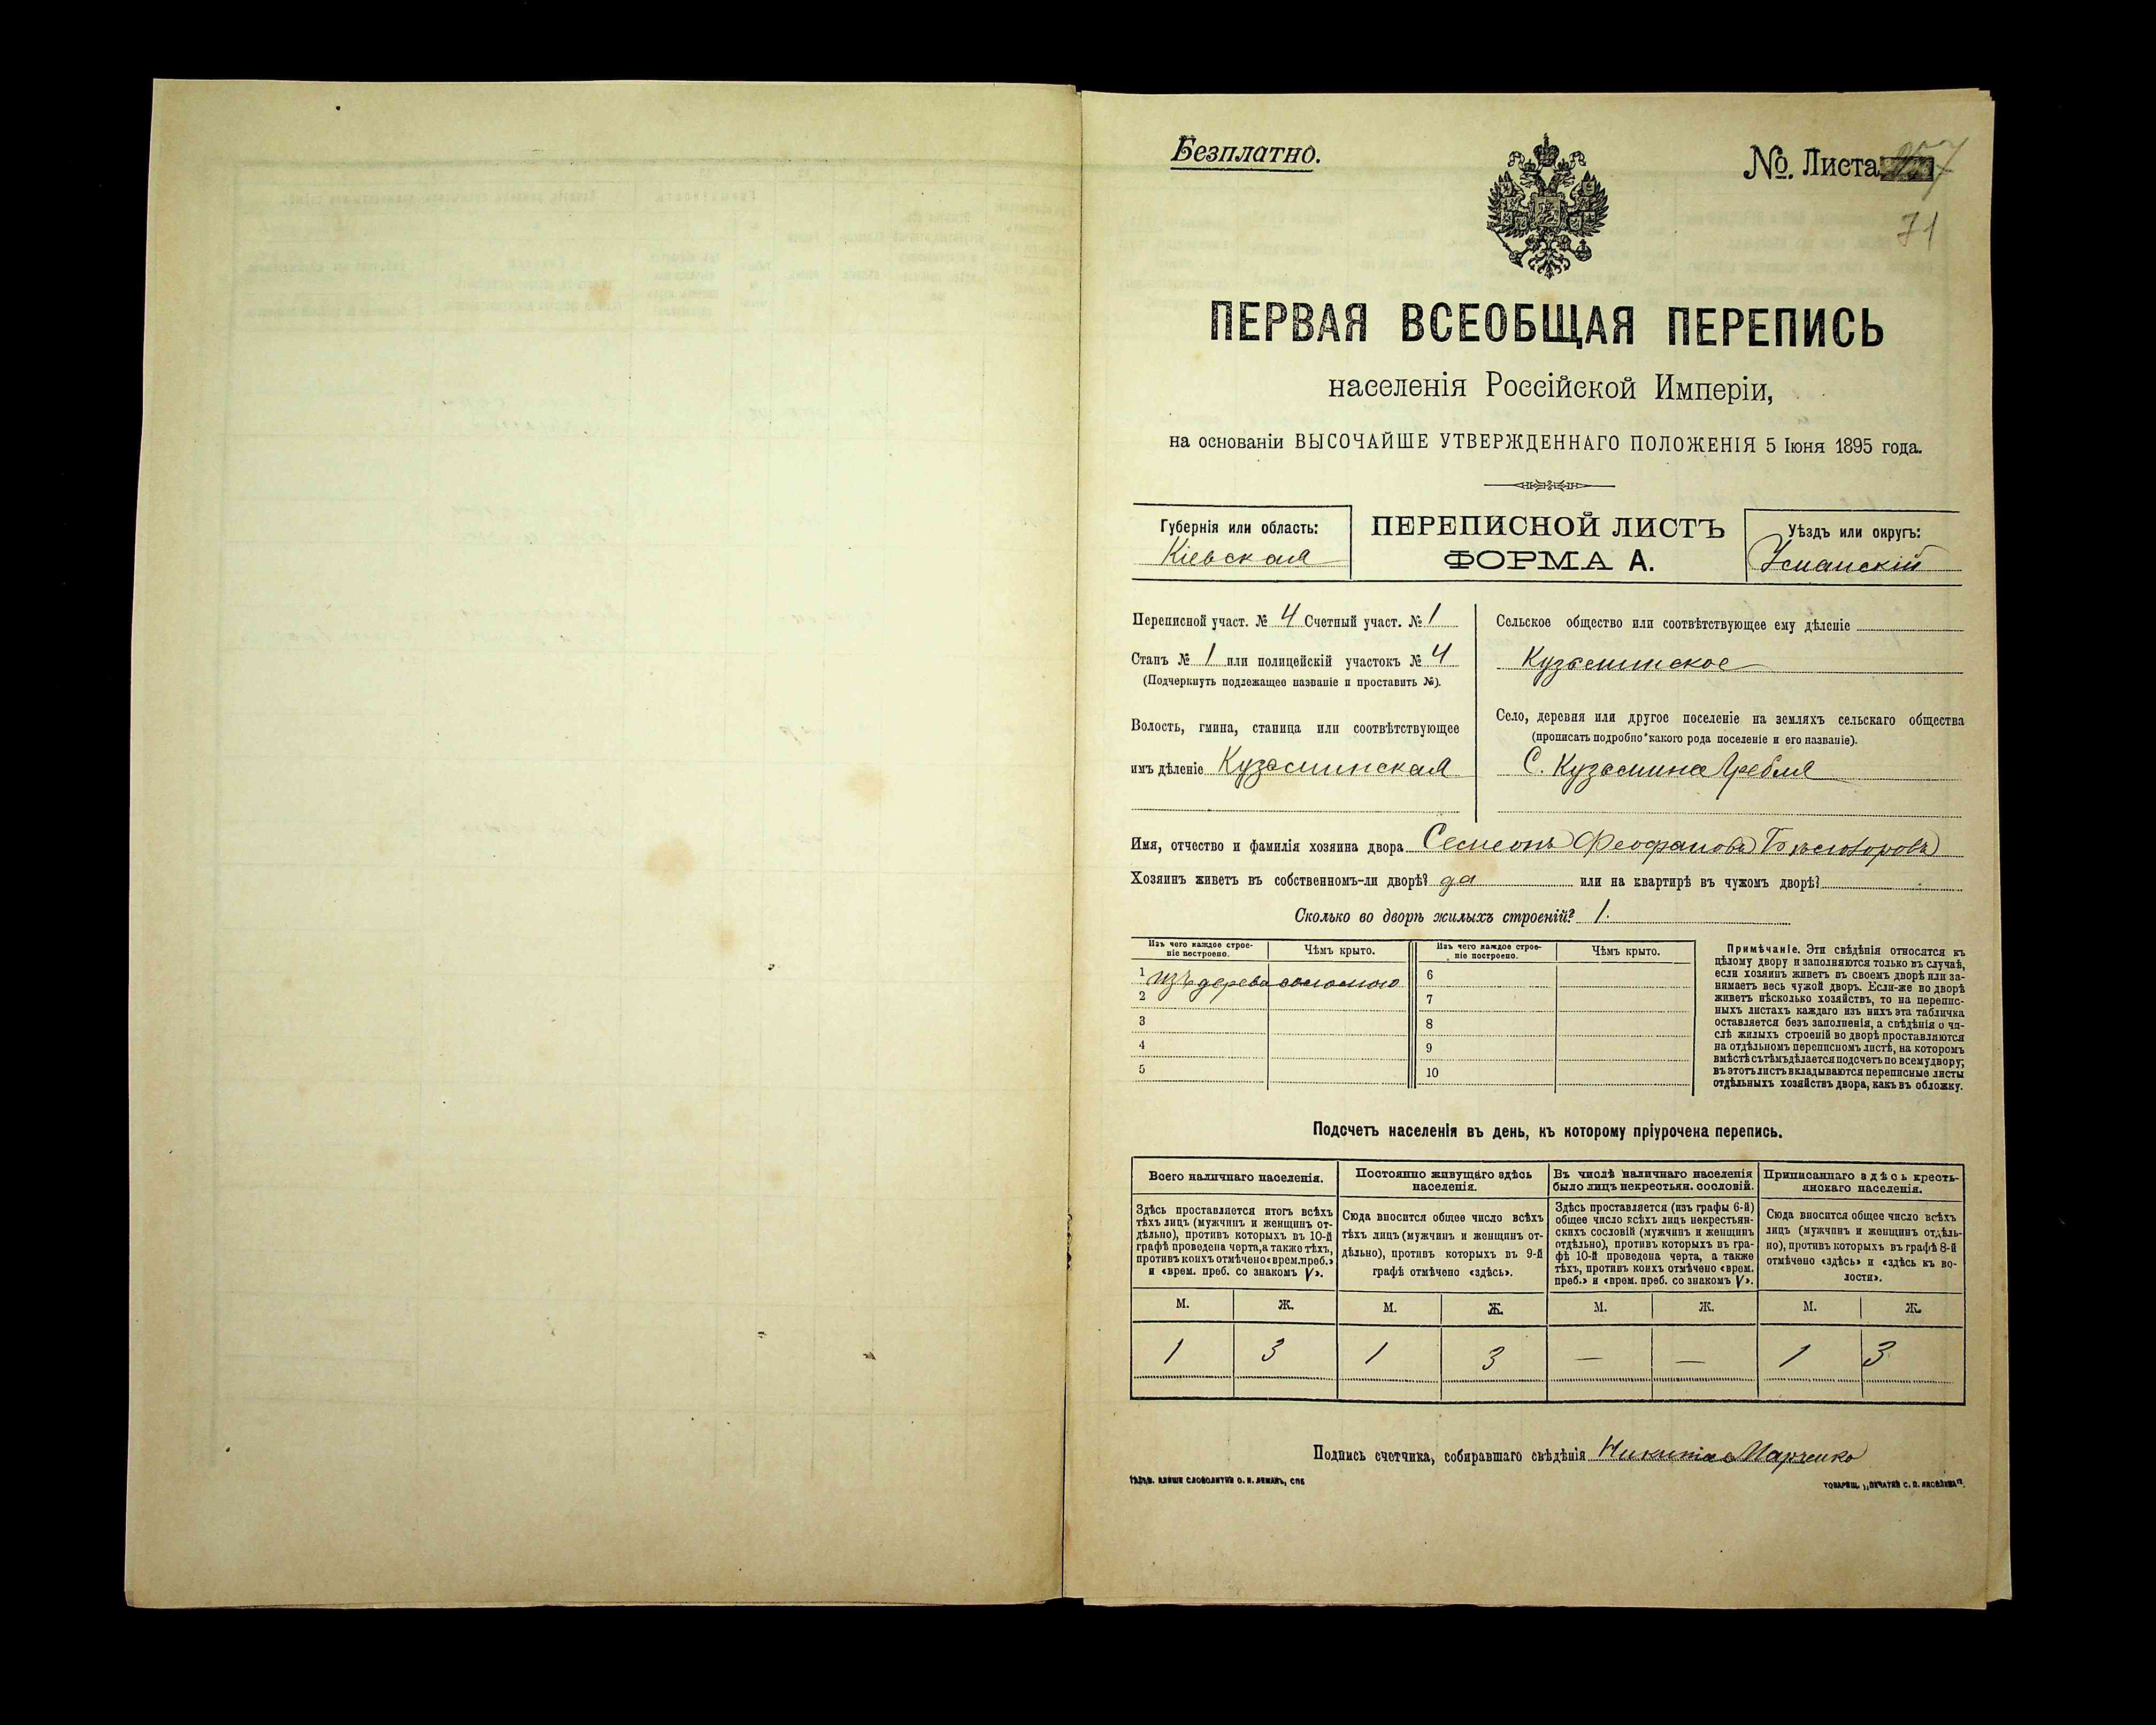 Безплатно.
№ Листа
71
ПЕРВАЯ ВСЕОБЩАЯ ПЕРЕПИСЬ
населенія Россійской Имперіи,
на основаніи ВЫСОЧАЙШЕ УТВЕРЖДЕННАГО ПОЛОЖЕНІЯ 5 Іюня 1895 года.
Губернія или область:
Кіевская
ПЕРЕПИСНОЙ ЛИСТЪ
ФОРМА А.
Уѣздъ или округъ:
Уманскій
Переписной участ. № 4 Счетный участ. № 1
Станъ № 1 или полицейскій участокъ № 4
(Подчеркнуть подлежащее названіе и проставить №).
Волость, гмина, станица или соотвѣтствующее
имъ дѣленіе Кузьминская
Сельское общество или соотвѣтствующее ему дѣленіе
Кузьминское
Село, деревня или другое поселеніе на земляхъ сельскаго общества
(прописать подробно какого рода поселеніе и его названіе).
С. Кузьмина Гребля
Имя, отчество и фамилія хозяина двора Семеонъ Феофановъ
Хозяинъ живетъ въ собственномъ-ли дворѣ? да или на квартирѣ въ чужомъ дворѣ?
Сколько во дворѣ жилыхъ строеній? 1.
Изъ чего каждое строе-
ніе построено.
Чѣмъ крыто.
Изъ чего каждое строе-
ніе построено.
Чѣмъ крыто.
1 изъ дерева соломою
2
3
4
5
6
7
8
9
10
Примѣчаніе. Эти свѣдѣнія относятся къ
цѣлому двору и заполняются только въ случаѣ,
если хозяинъ живетъ въ своемъ дворѣ или за-
нимаетъ весь чужой дворъ. Если-же во дворѣ
живетъ нѣсколько хозяйствъ, то на перепис-
ныхъ листахъ каждаго изъ нихъ эта табличка
оставляется безъ заполненія, а свѣдѣнія о чи-
слѣ жилыхъ строеній во дворѣ проставляются
на отдѣльномъ переписномъ листѣ, на которомъ
вмѣстѣ съ тѣмъ дѣлается подсчетъ по всему двору;
въ этотъ листъ вкладываются переписные листы
отдѣльныхъ хозяйствъ двора, какъ въ обложку.
Подсчетъ населенія въ день, къ которому пріурочена перепись.
Всего наличнаго населенія.
Здѣсь проставляется итогъ всѣхъ
тѣхъ лицъ (мужчинъ и женщинъ от-
дѣльно), противъ которыхъ въ 10-й
графѣ проведена черта, а также тѣхъ,
противъ коихъ отмѣчено «врем. преб.»
и «врем. преб. со знакомъ V».
Постоянно живущаго здѣсь
населенія.
Сюда вносится общее число всѣхъ
тѣхъ лицъ (мужчинъ и женщинъ от-
дѣльно), противъ которыхъ въ 9-й
графѣ отмѣчено «здѣсь».
Въ числѣ наличнаго населенія
было лицъ некрестьян. сословій.
Здѣсь проставляется (изъ графы 6-й)
общее число всѣхъ лицъ некрестьян-
скихъ сословій (мужчинъ и женщинъ
отдѣльно), противъ которыхъ въ гра-
фѣ 10-й проведена черта, а также
тѣхъ, противъ коихъ отмѣчено «врем.
преб.» и «врем. преб. со знакомъ V».
Приписаннаго здѣсь кресть-
янскаго населенія.
Сюда вносится общее число всѣхъ
лицъ (мужчинъ и женщинъ отдѣль-
но), противъ которыхъ въ графѣ 8-й
отмѣчено «здѣсь» и «здѣсь къ во-
лости».
М. Ж. М. Ж. М. Ж. М. Ж.
1 3 1 3 — — 1 3
Подпись счетчика, собиравшаго свѣдѣнія Никита Марченко
СЛОВОЛИТНИ О. И. ЛЕМАНЪ, СПБ
ТОВАРИЩ. „ПЕЧАТНЯ С. П. ЯКОВЛЕВА“.